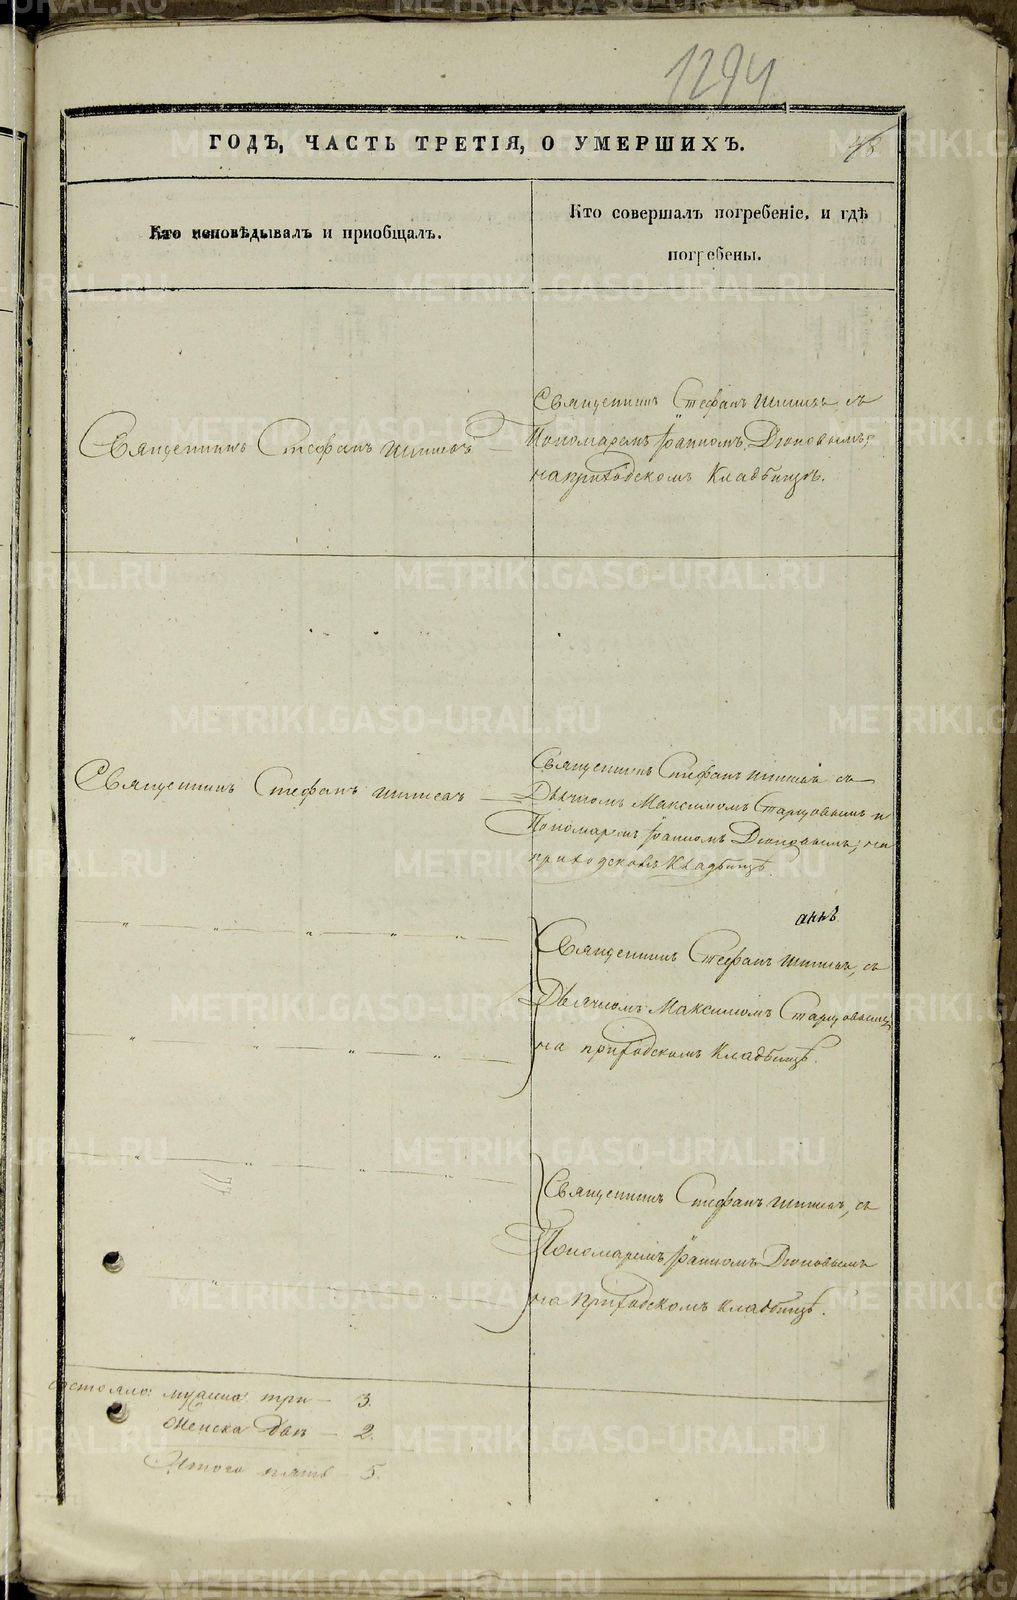 1294
ГОДЪ, ЧАСТЬ ТРЕТІЯ, О УМЕРШИХЪ.
Кто исповѣдывалъ и пріобщалъ.
Кто совершалъ погребеніе, и гдѣ
погребены.
Священникъ Стефанъ
Священникъ Стефанъ съ
Пономаремъ Іоанномъ Дюковымъ,
на приходскомъ Кладбищѣ.
Священникъ Стефанъ
Священникъ Стефанъ съ
Дьячкомъ Максимомъ Старцовымъ и
Пономаремъ Іоанномъ Дюковымъ, на
приходскомъ Кладбищѣ.
Священникъ Стефанъ съ
Дьячкомъ Максимомъ Старцовымъ
на приходскомъ Кладбищѣ.
Священникъ Стефанъ съ
Пономаремъ Іоанномъ Дюковымъ
на приходскомъ кладбищѣ.
три — 3.
Женска двѣ — 2.
Итого пять — 5.
METRIKI.GASO-URAL.RU